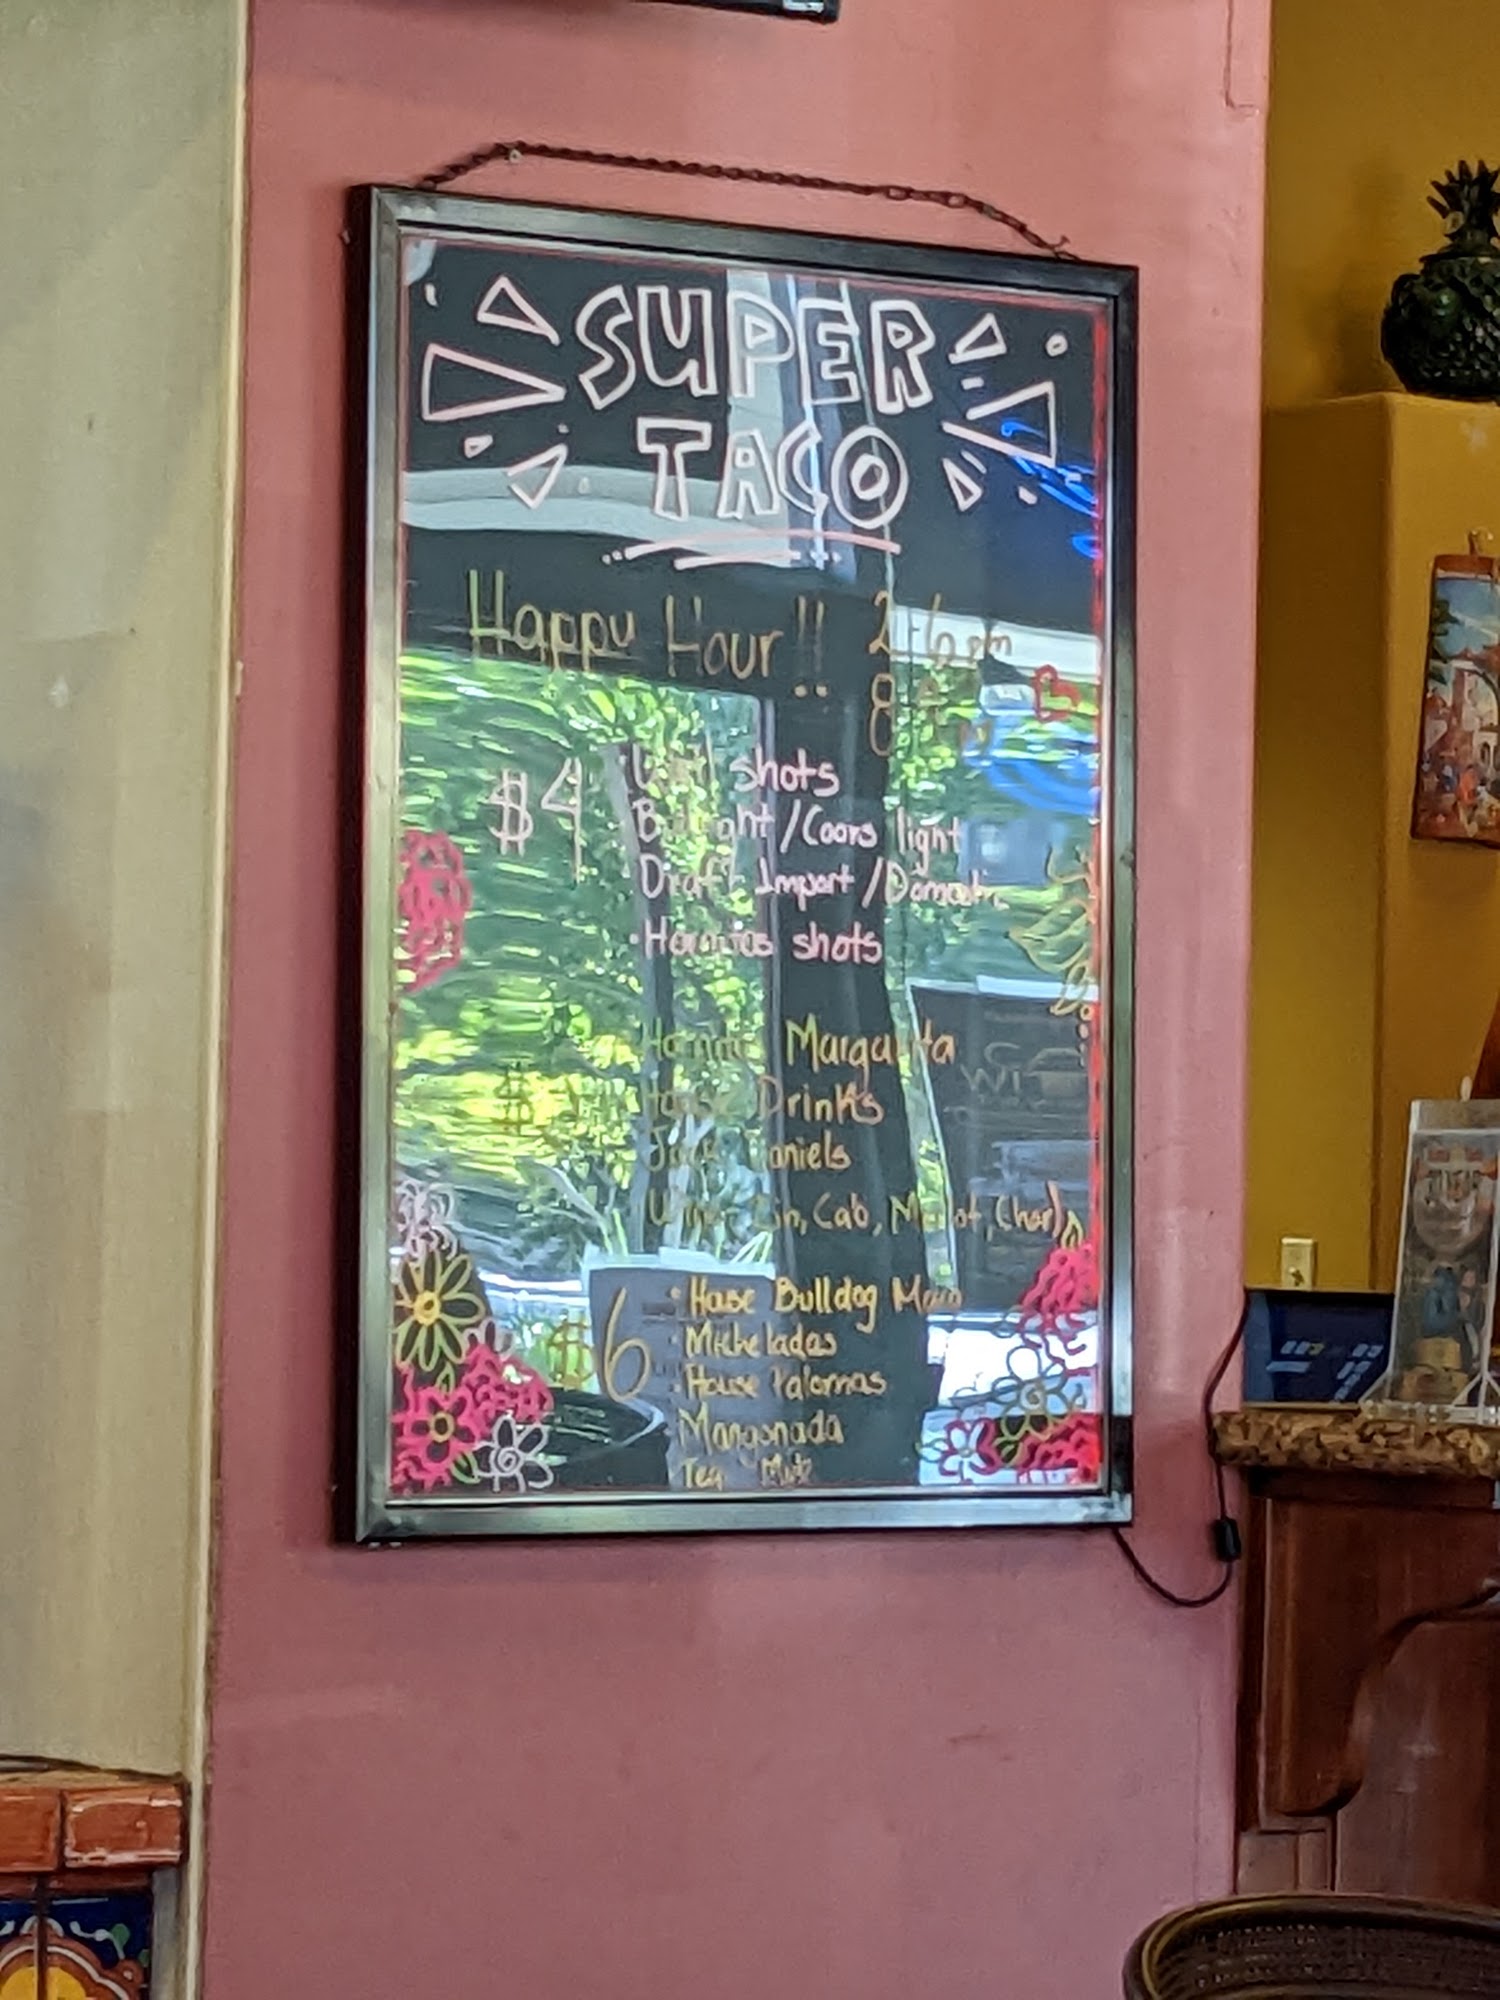 SUPER
TACO
Happy Hour!! 2-6pm
8
$4
Well shots
Bud light/Coors light
Draft Import/Domestic
·Hornitos shots
Hornitos Margarita
$
House Drinks
Jack Daniels
Wine Zin, Cab, Merlot, Char)
$6
·House Bulldog
·Micheladas
·House Palomas
Mangonada
Tea